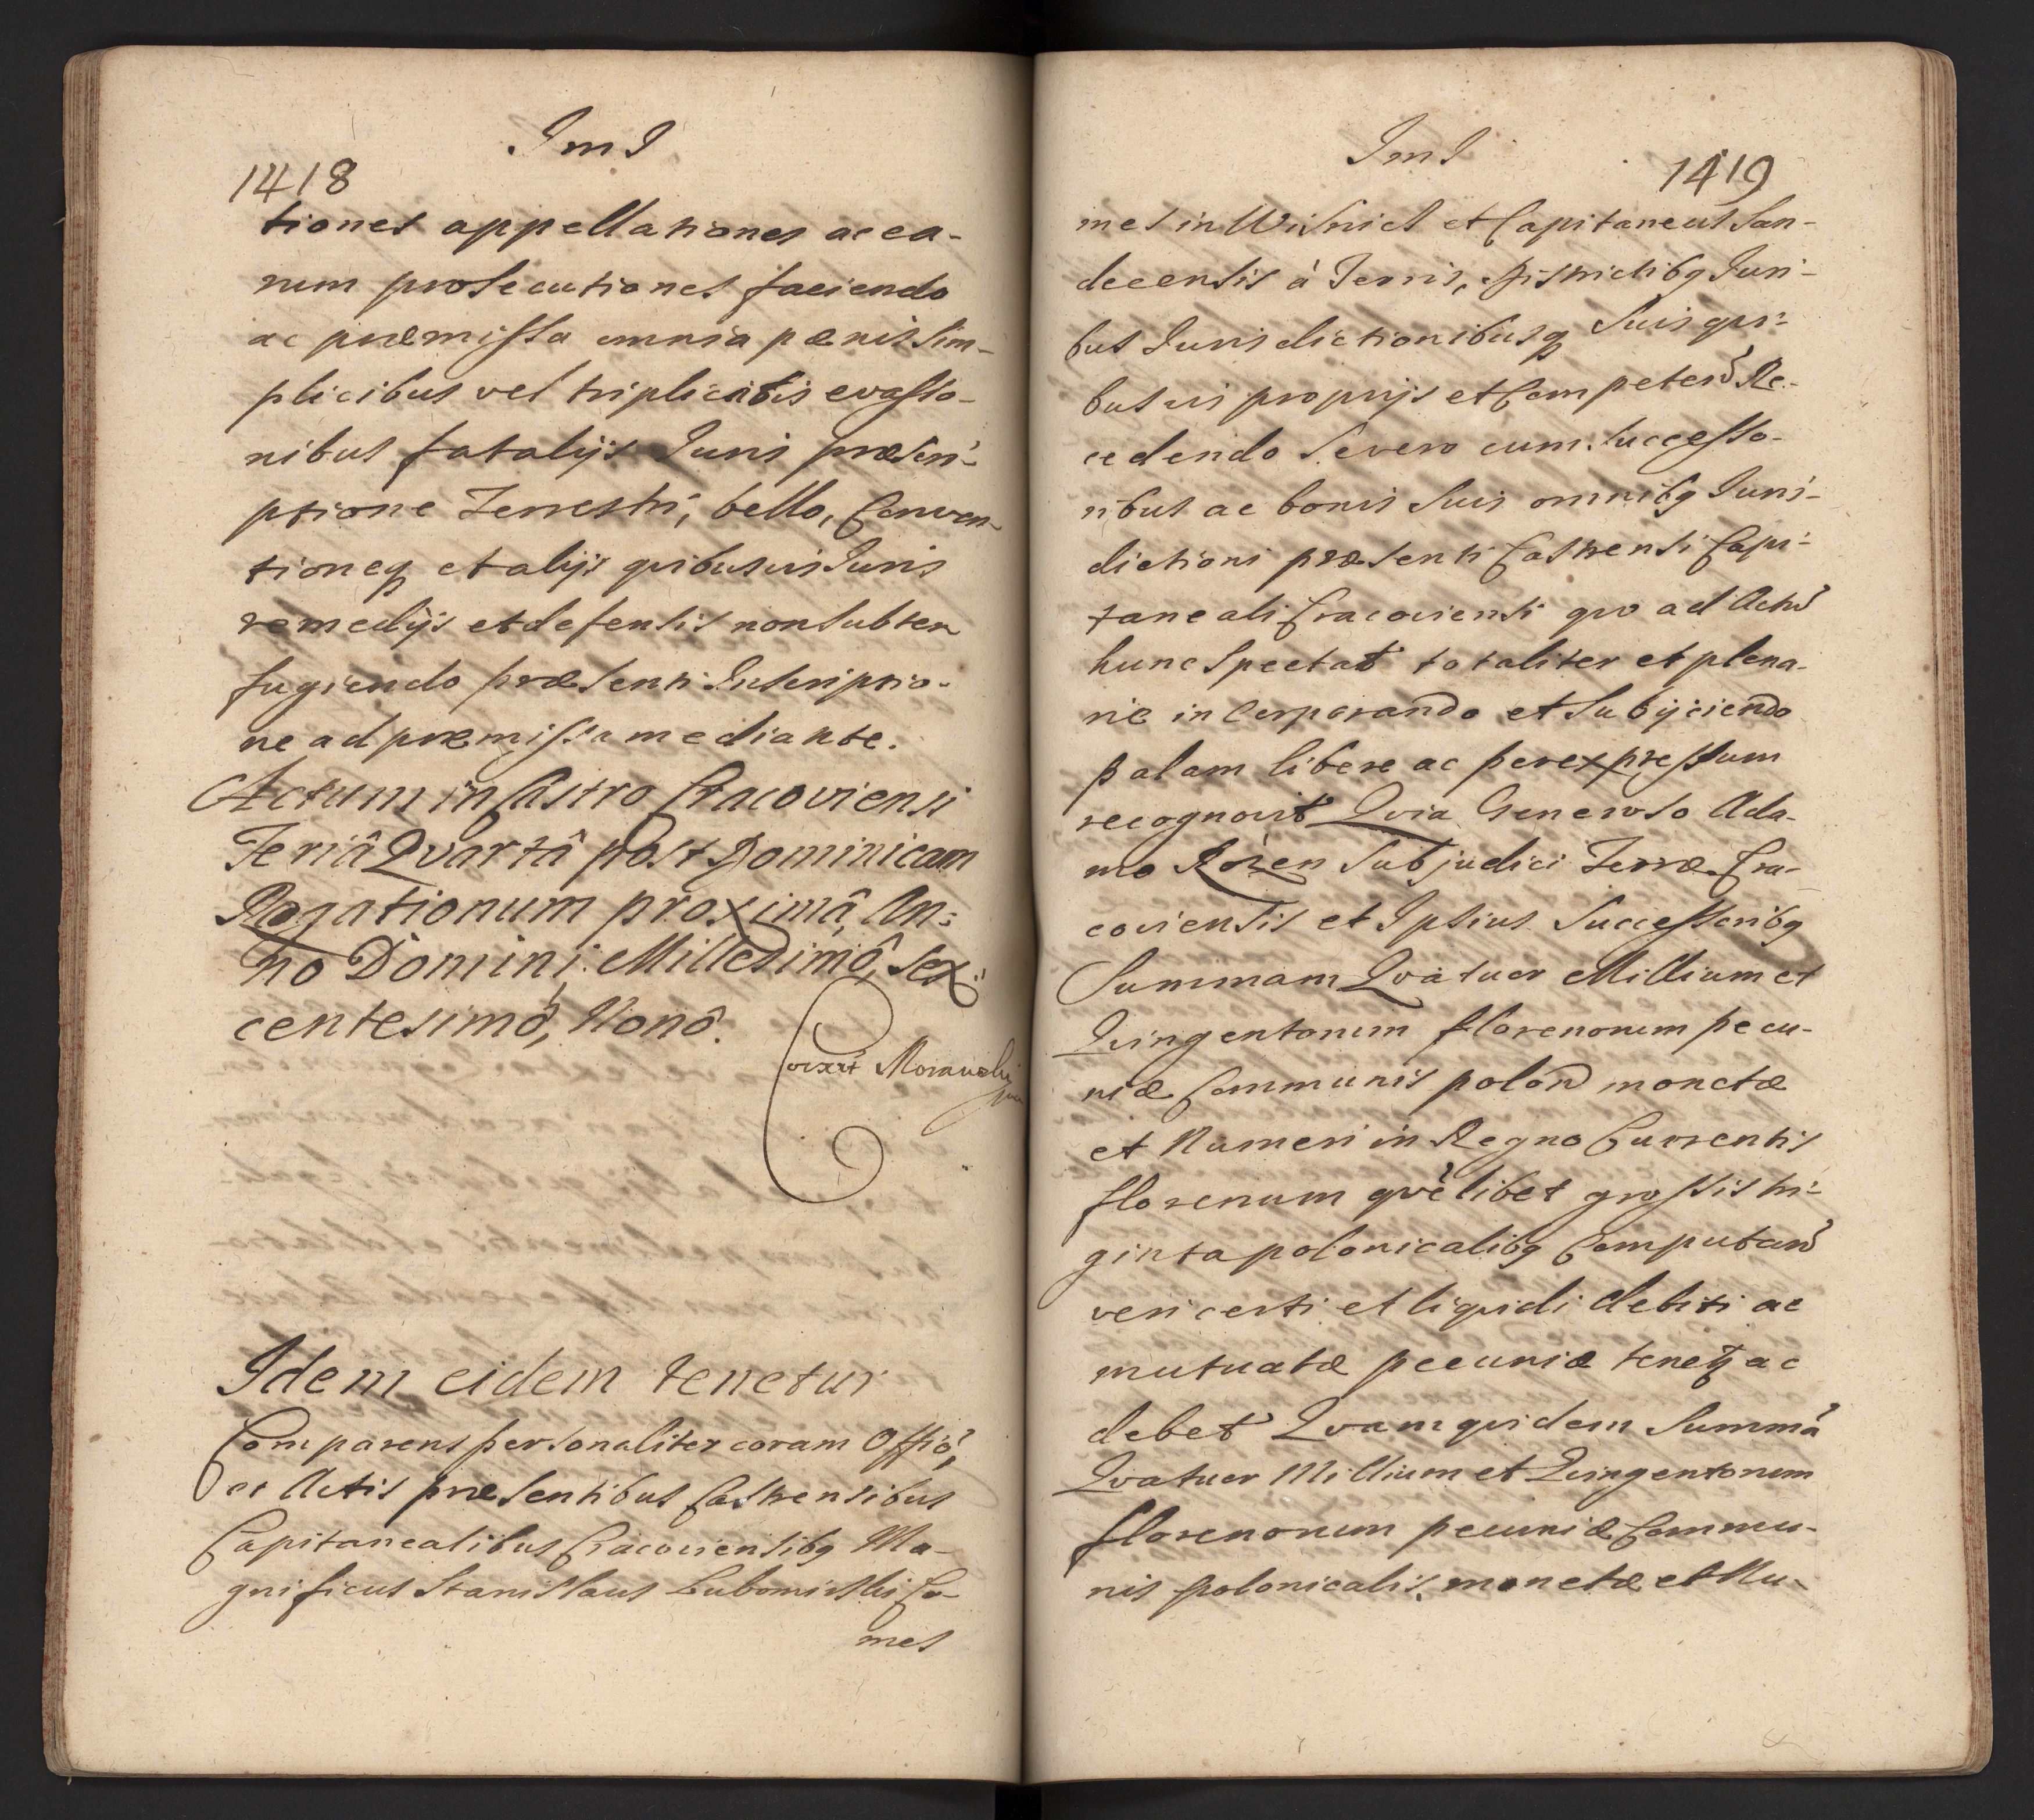 ImI
1418
tiones appellationes ac ea-
rum prosecutiones faciendo
ac præmissa omnia pænis sim-
plicibus vel triplicibis evasso-
nibus fatalijs Juris præscri-
ptione Terrestri, bello, Conven-
tioneq et alijs quibusvis Juris
remedijs et defensis non subter
fugiendo præsenti Inscriptio-
ne ad præmissa mediante.
Actum in Castro Cracoviensi
Feriâ Qvartâ post Dominicam
Rogationum proximâ, An:
no Domini: Millesimô, Sex:
centesimô, Nonô.
Idem eidem tenetur
Comparens personaliter coram Offio,
et Actis præsentibus Castrensibus
Capitanealibus Cracoviensibq Ma-
gnificus Stanislaus Lubomirski Co-
mes
ImI
1419
mes in Wisnicz et Capitaneus San-
decensis à Terris, Districtibq Juri-
bus Jurisdictionibusq Suis qvi-
busvis proprijs et Competen Re-
cedendo Severo cum Successo-
ribus ac bonis Suis omnibq Juris-
dictioni præsenti Castrensi Capi-
taneali Cracoviensi qvo ad Actu
hunc Spectat totaliter et plena-
rie incorporando et Subijciendo
palam libere ac per expressum
recognovit Qvia Generoso Ada-
mo Rozen Subjudici Terræ Cra-
coviensis et Ipsius Successoribq
Summam Qvatuor Millium et
Qvingentorum florenorum pecu-
niæ Communis polon monetæ
et Numeri in Regno Currentis
florenum qvelibet grossis tri-
ginta polonicalibq Computan
veri certi et liqvidi debiti ac
mutuatæ pecuniæ tenetq ac
debet Qvam qvidem Summa
Qvatuor Millium et Qvingentorum
florenorum pecuniæ Commu-
nis polonicalis monetæ et Nu-